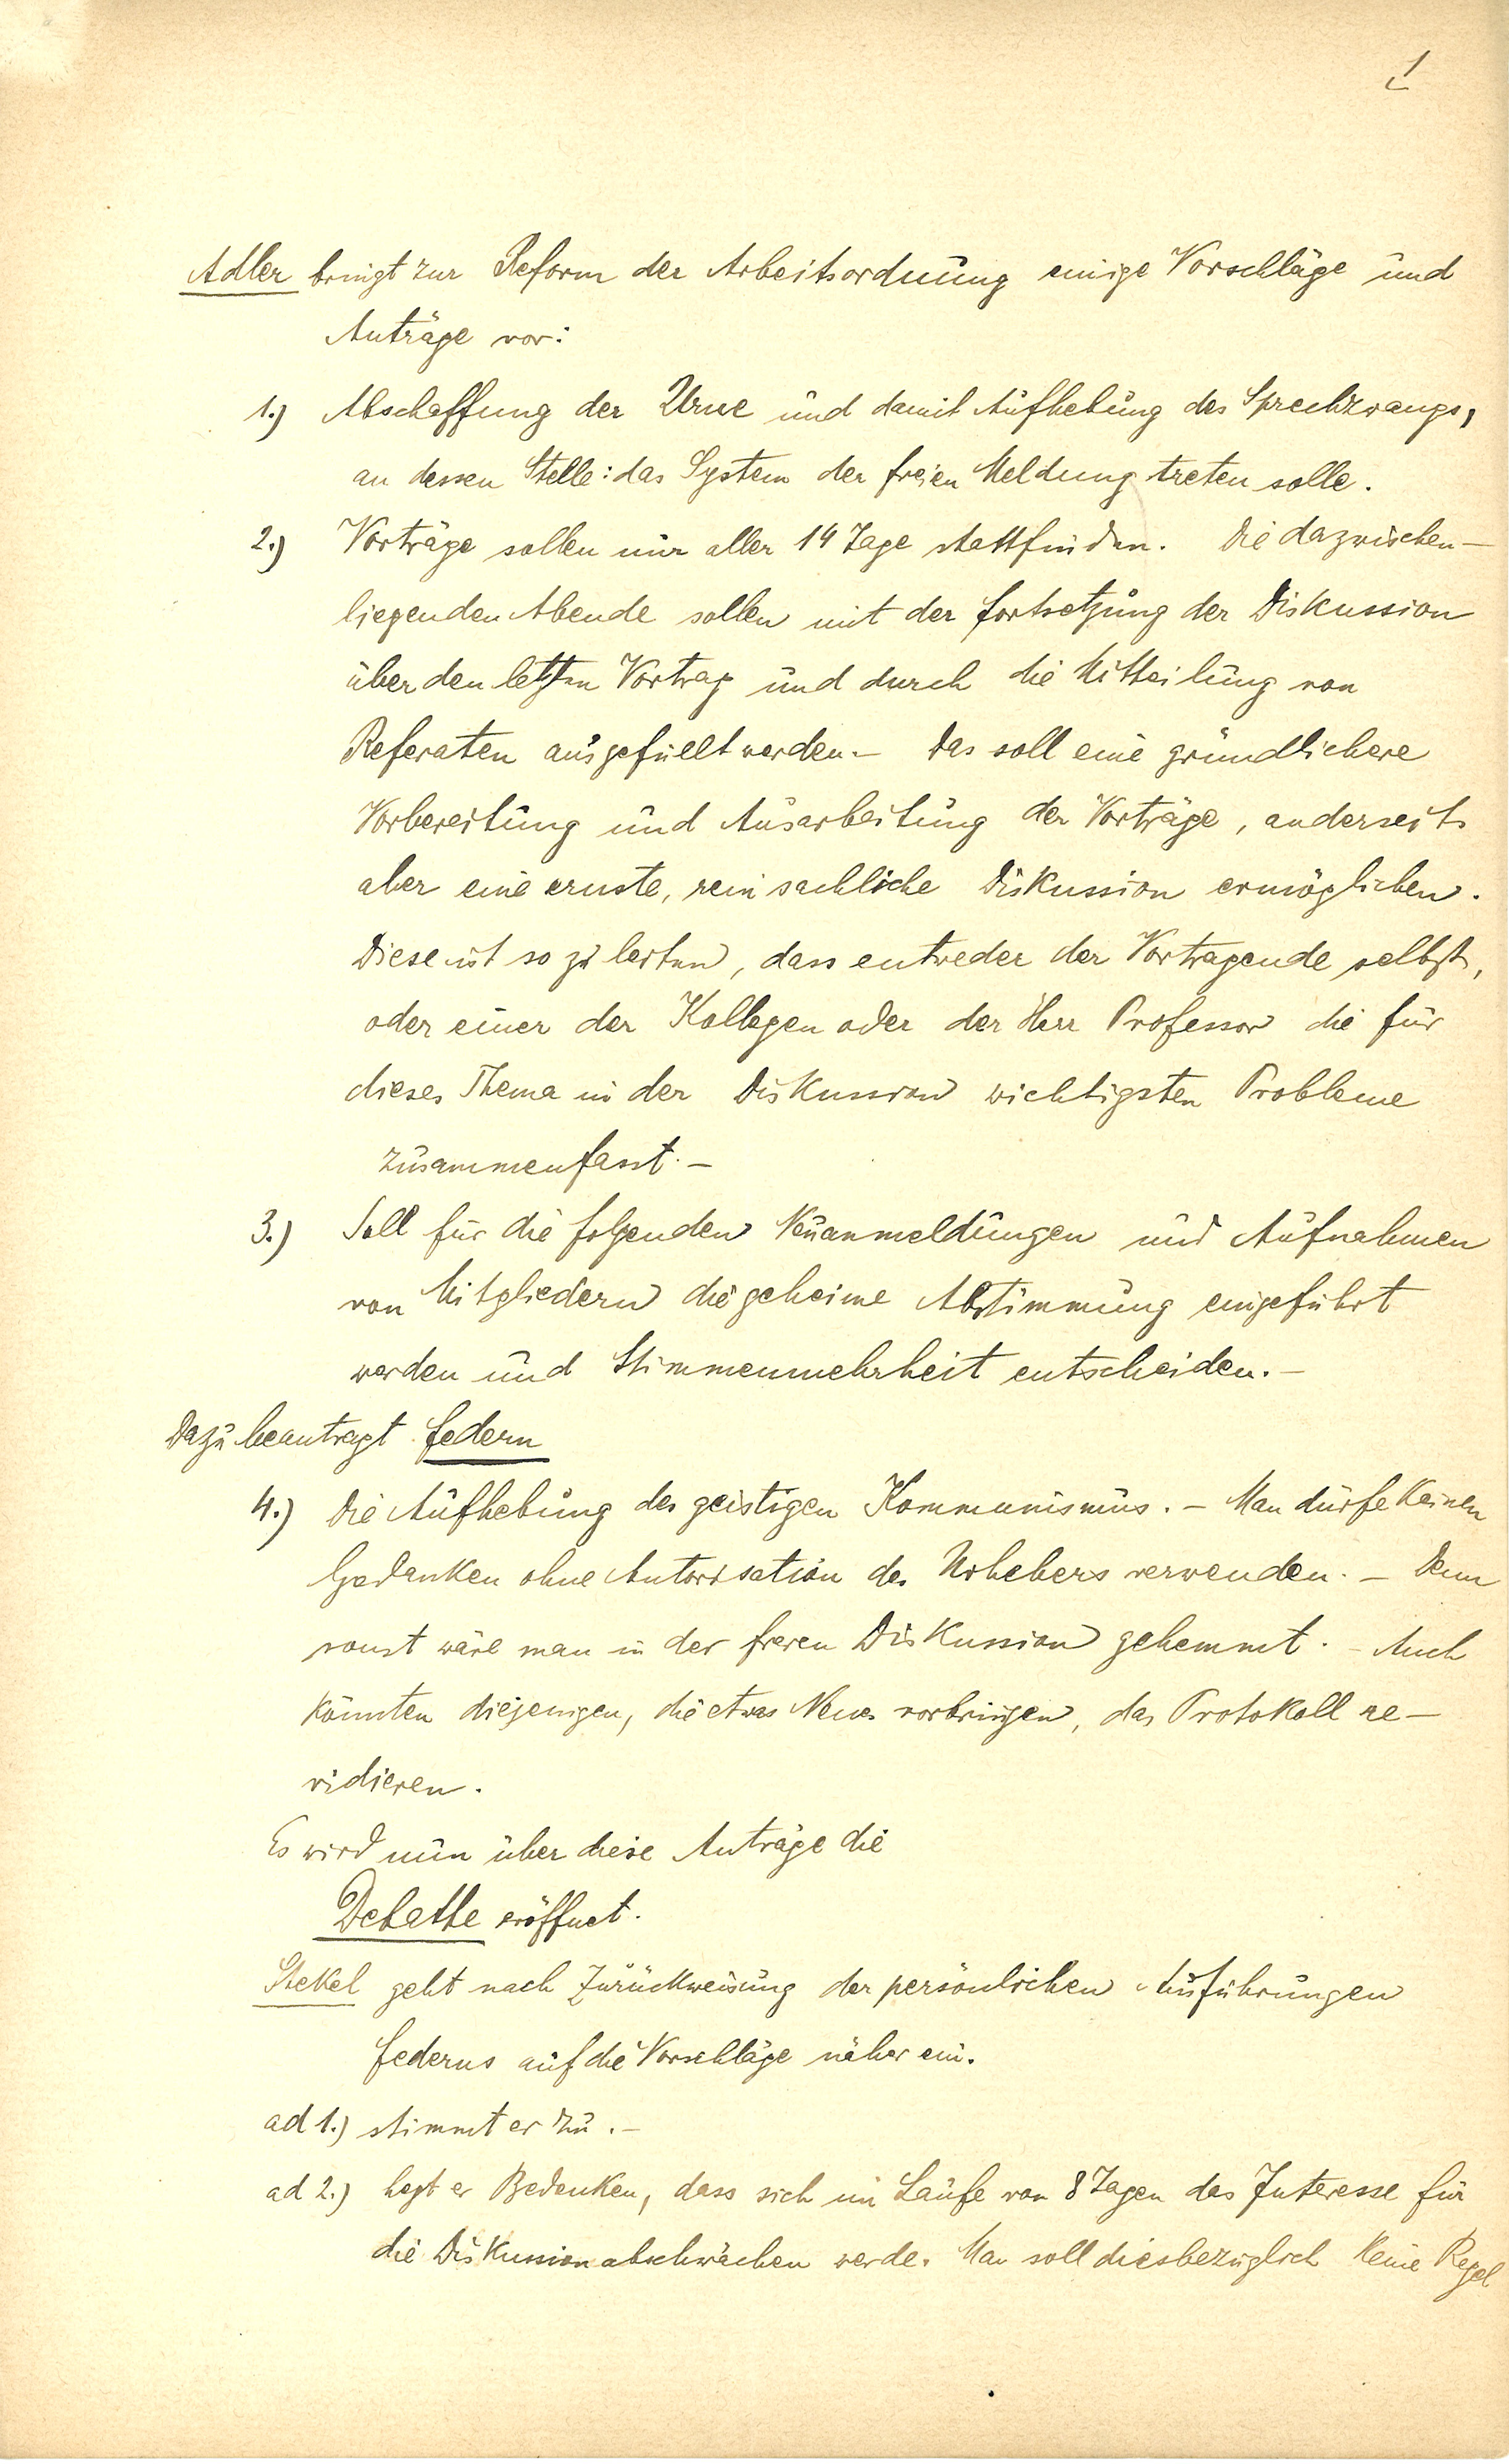 1
Adler bringt zur Reform der Arbeitsordnung einige Vorschläge und
Anträge vor:
1.) Abschaffung der Urne und damit Aufhebung des Sprechzwangs,
an dessen Stelle: das System der freien Meldung treten solle.
2.) Vorträge sollen nur aller 14 Tage stattfinden. Die dazwischen-
liegenden Abende sollen mit der Fortsetzung der Diskussion
über den letzten Vortrag und durch die Mitteilung von
Referaten ausgefüllt werden. – Das soll eine gründlichere
Vorbereitung und Ausarbeitung der Vorträge, anderseits
aber eine ernste, rein sachliche Diskussion ermöglichen.
Diese ist so zu leiten, dass entweder der Vortragende selbst,
oder einer der Kollegen oder der Herr Professor die für
dieses Thema in der Diskussion wichtigsten Probleme
zusammenfasst. –
3.) Soll für die folgenden Neuanmeldungen und Aufnahmen
von Mitgliedern die geheime Abstimmung eingeführt
werden und Stimmenmehrheit entscheiden. –
Dazu beantragt Federn
4.) Die Aufhebung des geistigen Kommunismus. – Man dürfe keinen
Gedanken ohne Autorisation des Urhebers verwenden. – Denn
sonst wäre man in der freien Diskussion gehemmt. – Auch
könnten diejenigen, die etwas Neues vorbringen, das Protokoll re-
vidieren.
Es wird nun über diese Anträge die
Debatte eröffnet.
Stekel geht nach Zurückweisung der persönlichen Ausführungen
Federns auf die Vorschläge näher ein.
ad 1.) stimmt er zu. –
ad 2.) hegt er Bedenken, dass sich im Laufe von 8 Tagen das Interesse für
die Diskussion abschwächen werde. Man soll diesbezüglich keine Regel